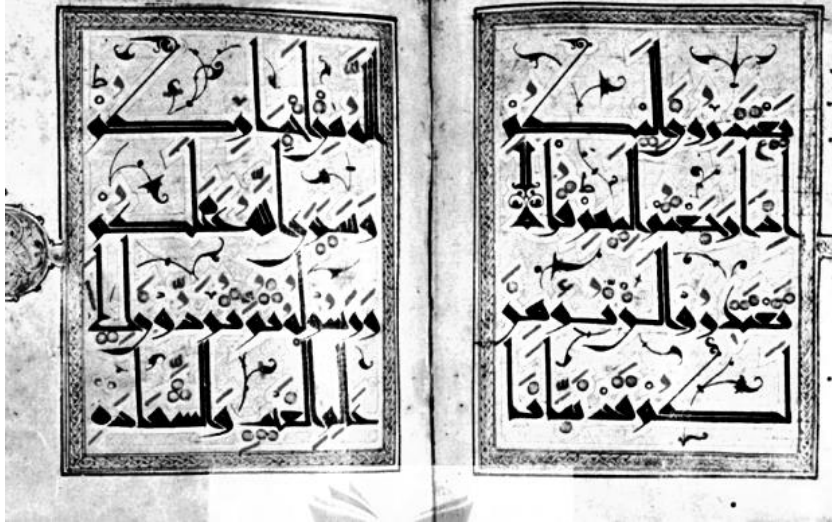 يعتذرون إليكم
إذا رجعتم إليهم قل لا
تعتذروا لن نؤمن
لكم قد نبأنا
الله من أخباركم
وسيرى الله عملكم
ورسوله ثم تردون إلى
علم الغيب والشهادة